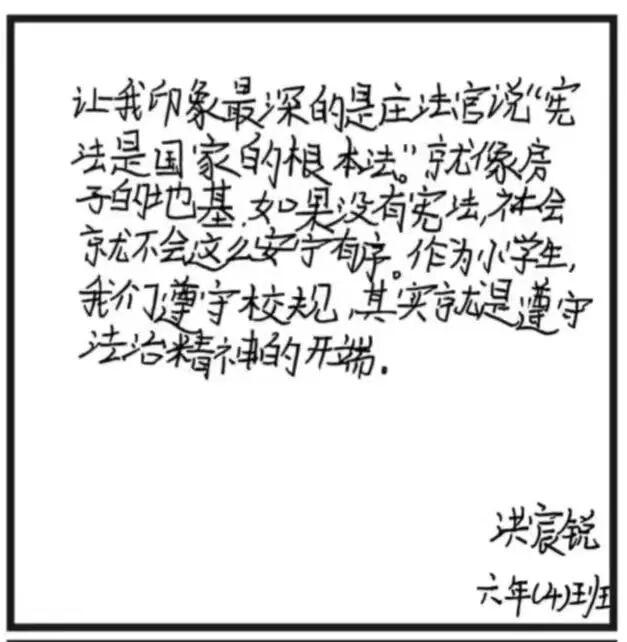 让我印象最深的是庄法官说“宪
法是国家的根本法。”就像房
子的地基,如果没有宪法,社会
就不会这么安宁有序。作为小学生,
我们遵守校规,其实就是遵守
法治精神的开端.
洪宸锐
六年(4)班